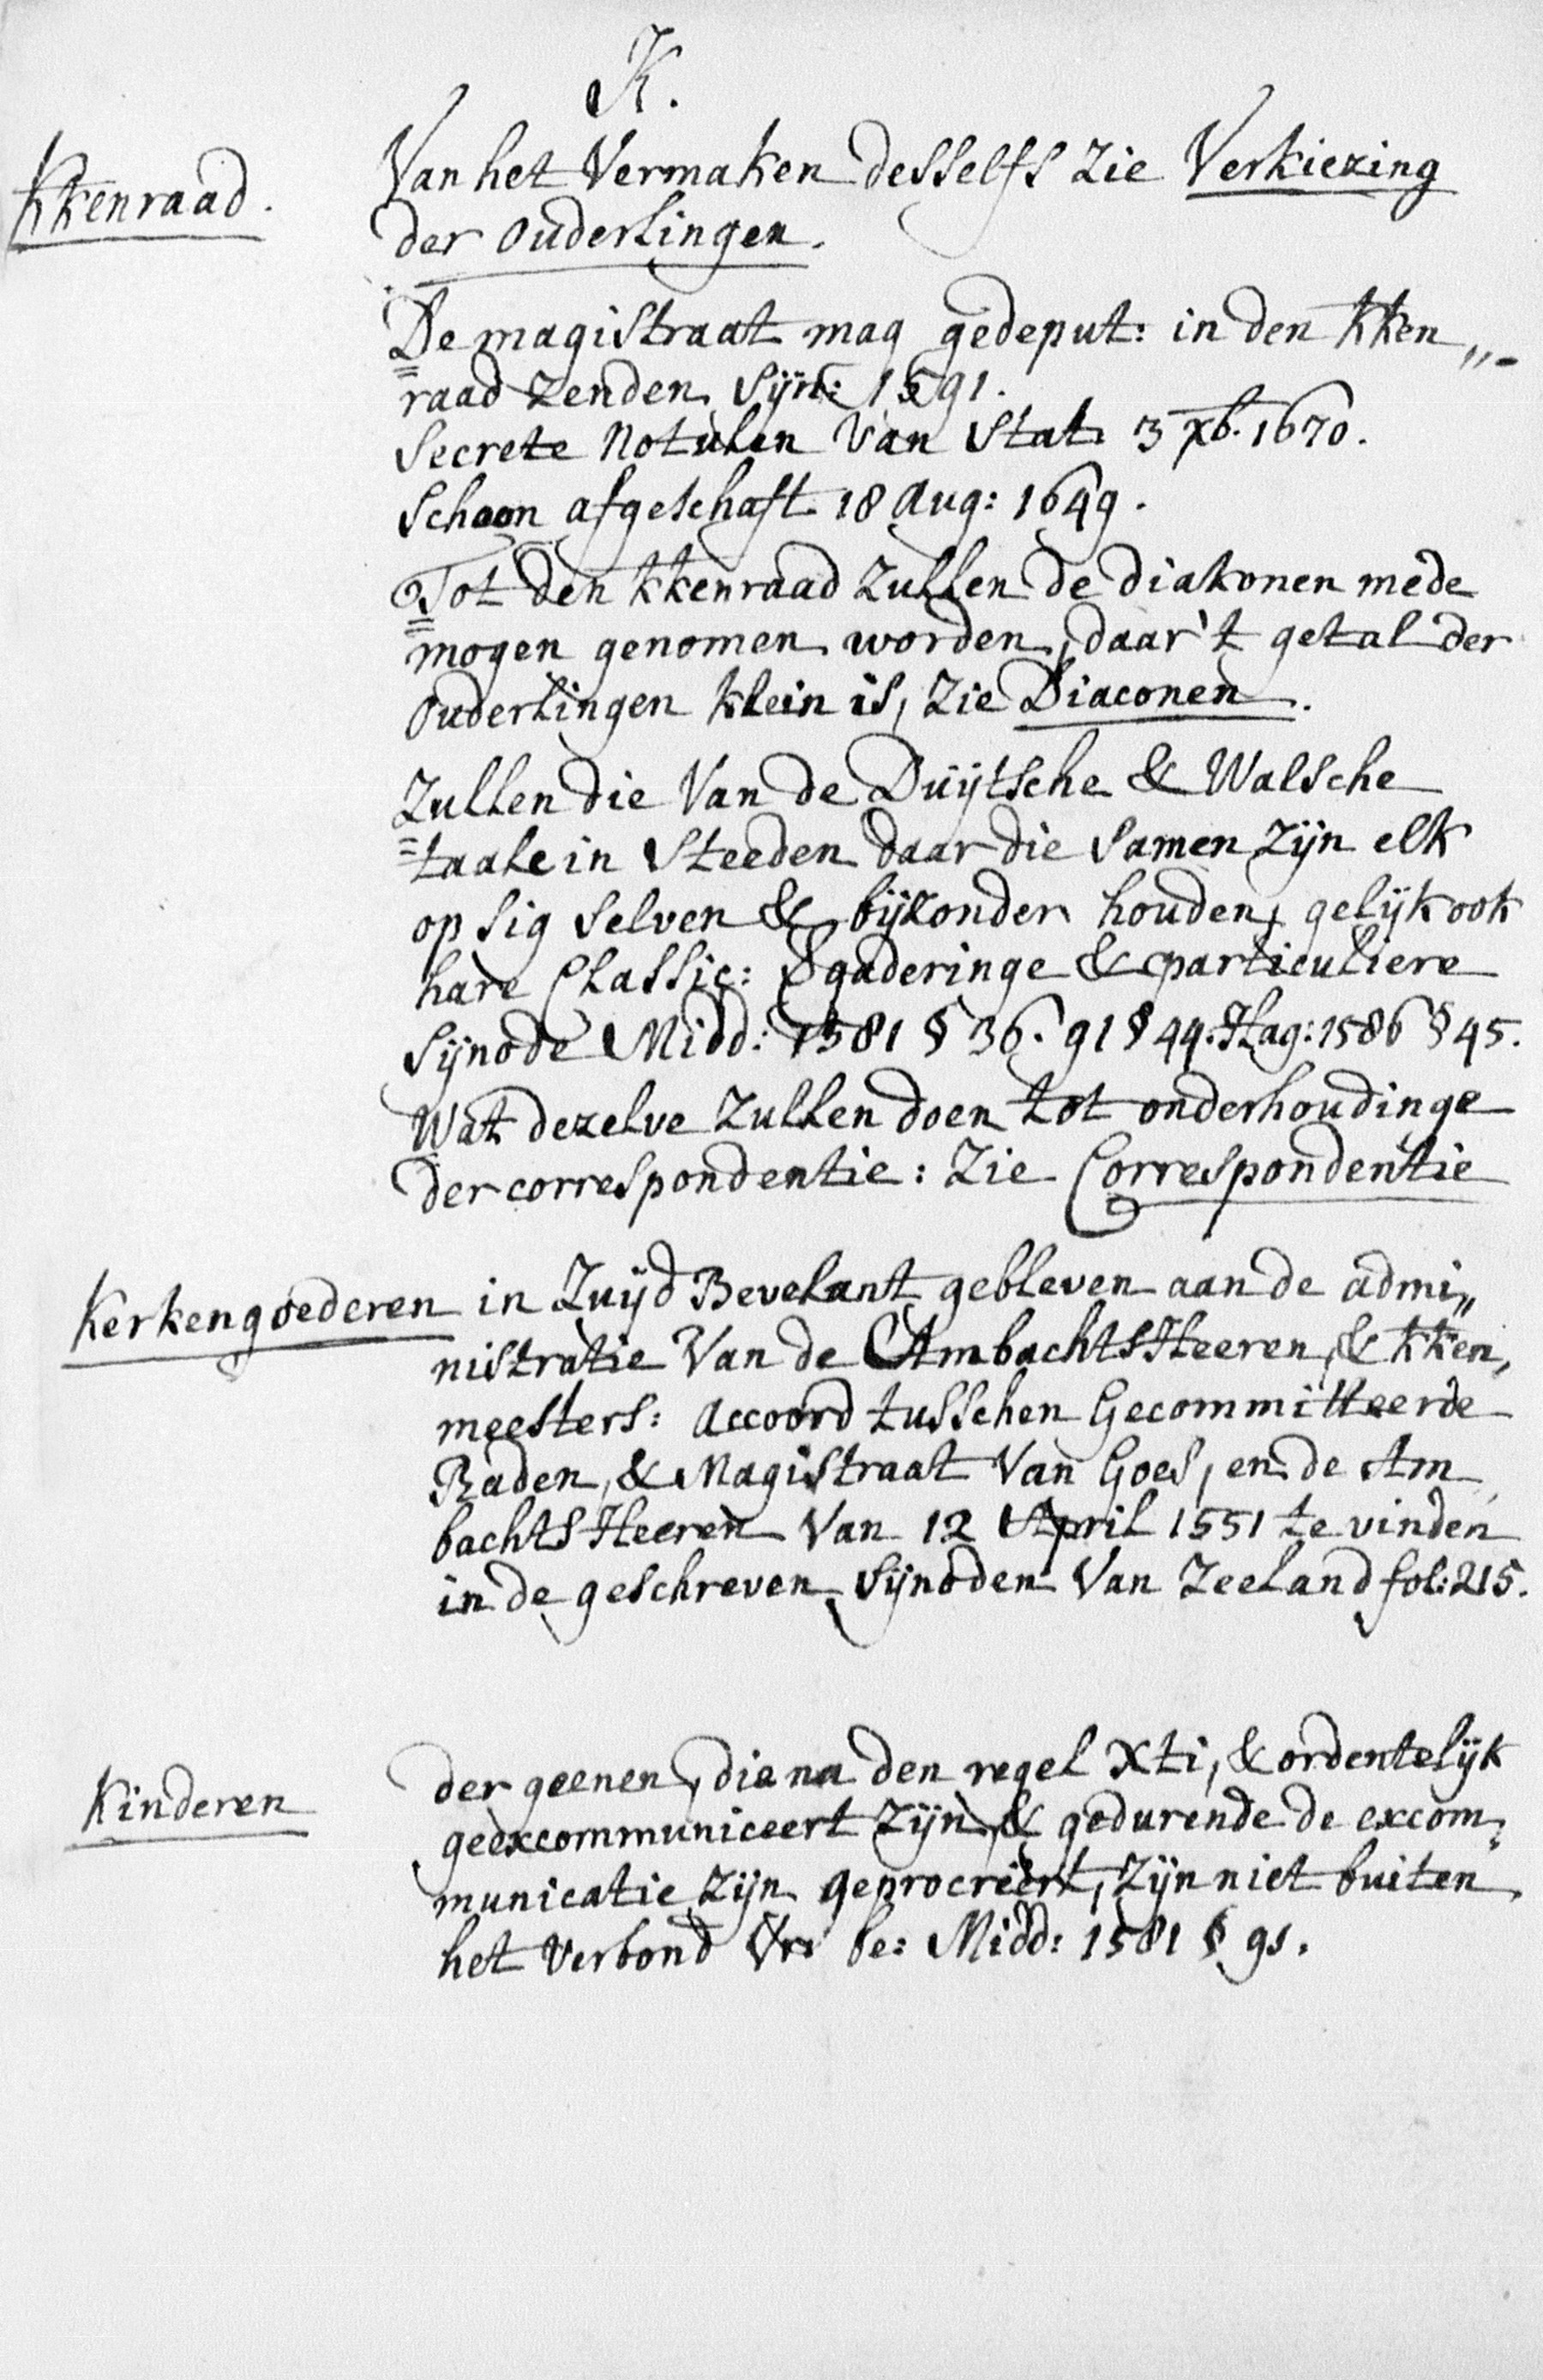 K.
Kkenraad. Van het Vermaken desselfs zie Verkiezing
der Ouderlingen.
De magistraat mag gedeput: in den kken„-
raad zenden. Sijn: 1591.
Secrete Notulen van Stat. 3 xb. 1670.
Schoon afgeschaft 18 Aug: 1649.
Tot den kkenraad zullen de diakonen mede
mogen genomen worden, daar 't getal der
Ouderlingen klein is, zie Diaconen.
Zullen die van de Duijtsche & Walsche
taale in Steeden daar die samen zijn elk
op sig selven & bijzonder houden, gelijk ook
hare Classic: Vgaderinge & particuliere
Sijnode Midd: 1581 § 36. 91 § 44. Hag: 1586 § 45.
Wat dezelve zullen doen tot onderhoudinge
der correspondentie: zie Correspondentie
Kerkengoederen in Zuijd Bevelant gebleven aan de admi„
nistratie van de Ambachts Heeren, & kken,
meesters: accoord tusschen Gecommitteerde
Raden, & Magistraat van Goes, en de Am
bachts Heeren van 12 April 1551 te vinden
in de geschreven Sijnoden van Zeeland fol: 215.
Kinderen der geenen, die na den regel Xti, & ordentelijk
geëxcommuniceert zijn, & gedurende de excom„
municatie zijn geprocreëert, zijn niet buiten
het verbond be: Midd: 1581 § 91.